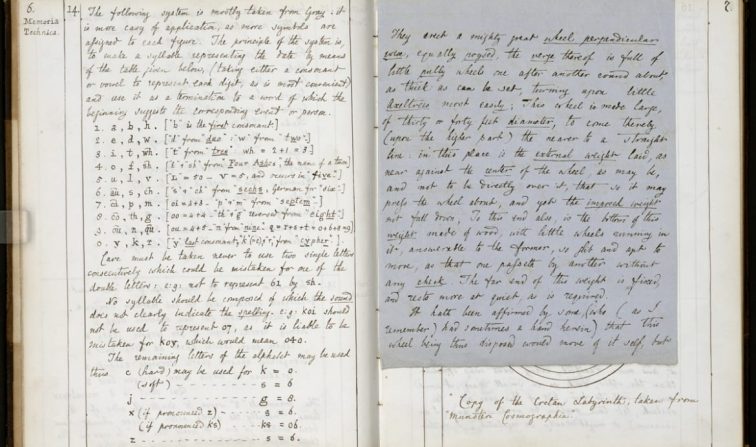 6.
Memoria
Technica.
14.
The following system is mostly taken from Gray: it
is more easy of application, as more symbols are
assigned to each figure. The principle of the system is,
to make a syllable representing the date by means
of the table given below, (taking either a consonant
or vowel to represent each digit, as is most convenient)
and use it as a termination to a word of which the
beginning suggests the corresponding event or person.
1. a, b, h. ["b" is the first consonant]
2. e, d, w, ["d" from duo: "w" from two]
3. i, t, wh, ["t" from tres: wh = 2+1 = 3]
4. o, f, sh ["f" "sh" from Four Ashes, the name of a town]
5. u, l, v. [L = 50 — V = 5, and occurs in "five"]
6. au, s, ch. ["s" & "ch" from sechs, German for "six"]
7. oi, p, m. ["p" & "m" from septem]
8. oo, th, g. [oo = 4+4. "th" & "g" reversed from eight]
9. ou, n, qu. [ou = 4+5. "n" from nine.
0. y, k, r. ["y" last consonant, from cypher.]
Care must be taken never to use two single letters
consecutively which could be mistaken for one of the
double letters: e.g: not to represent 61 by sh.
No syllable should be composed of which the sound
does not clearly indicate the spelling. e.g: koi should
not be used to represent 07, as it is liable to be
mistaken for koy, which would mean 040.
The remaining letters of the alphabet may be used
thus c (hard) may be used for k = 0.
(soft) - - - - s = 6
j - - - - g = 8.
x (if pronounced z) - - s = 6.
(if pronounced ks) - - ks = 06.
z - - - - s = 6.
7.
They erect a mighty great wheel perpendicular
equally poysed, the verge thereof is full of
little pully wheels one after another round about,
as thick as can be set, turning upon little
axeltrees most easily; This wheel is made large,
of thirty or forty feet diameter, to come thereby
(upon the higher part) the nearer to a straight
line: in this place is the external weight laid, as
near against the center of the wheel, as may be,
and not to be directly over it, that so it may
press the wheel about, and yet the weight
not fall down; To this end also, is the bottom of this
weight made of wood, with little wheels running in
it, answerable to the former, so fit and apt to
move, as that one passeth by another without
any check. The far end of this weight is fixed,
and rests more at quiet, as is required.
It hath been affirmed by some (who (as I
remember) had sometimes a hand herein) that this
wheel being thus disposed would move of it self, but
"Copy of the Cretan Labyrinth, taken from
Munster Cosmographia."